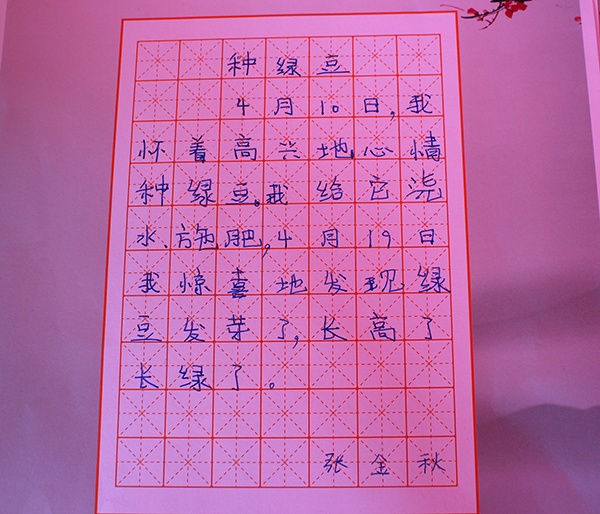 种绿豆
4月10日,我
怀着高兴地心情
种绿豆。我给它浇
水、施肥,4月19日
我惊喜地发现绿
豆发芽了,长高了
长绿了。
张金秋